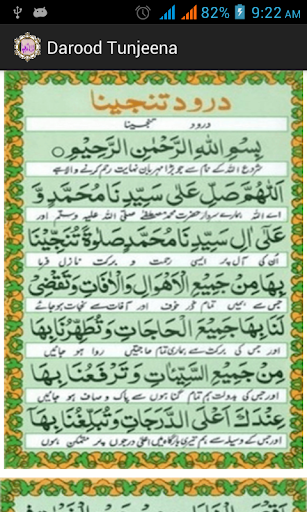 82% 9:22 AM
Darood Tunjeena
درود تنجینا
درود تنجینا
بِسْمِ اللهِ الرَّحْمٰنِ الرَّحِيْمِ
شروع اللہ کے نام سے جو بڑا مہربان نہایت رحم کرنے والا ہے
اَللّٰهُمَّ صَلِّ عَلٰى سَيِّدِنَا مُحَمَّدٍ وَّ
اے اللہ ہمارے سردار حضرت محمد مصطفٰے صلی اللہ علیہ وسلم اور
عَلٰى اٰلِ سَيِّدِنَا مُحَمَّدٍ صَلٰوةً تُنَجِّيْنَا
ان کی آل پر ایسی رحمت و برکت نازل فرما
بِهَا مِنْ جَمِيْعِ الْاَهْوَالِ وَالْاٰفَاتِ وَتَقْضِىْ
جس سے ہمیں تمام ڈر خوف اور آفات سے نجات ہو جائے
لَنَا بِهَا جَمِيْعَ الْحَاجَاتِ وَتُطَهِّرُنَا بِهَا
اور جس کی برکت سے ہماری تمام حاجتیں روا ہو جائیں
مِنْ جَمِيْعِ السَّيِّئَاتِ وَتَرْفَعُنَا بِهَا
اور جس کی بدولت ہم تمام گناہوں سے پاک و صاف ہو جائیں
عِنْدَكَ اَعْلَى الدَّرَجَاتِ وَتُبَلِّغُنَا بِهَا
اور جس کے وسیلہ سے ہم تیری بارگاہ میں اعلٰی درجوں پر متمکن ہوں